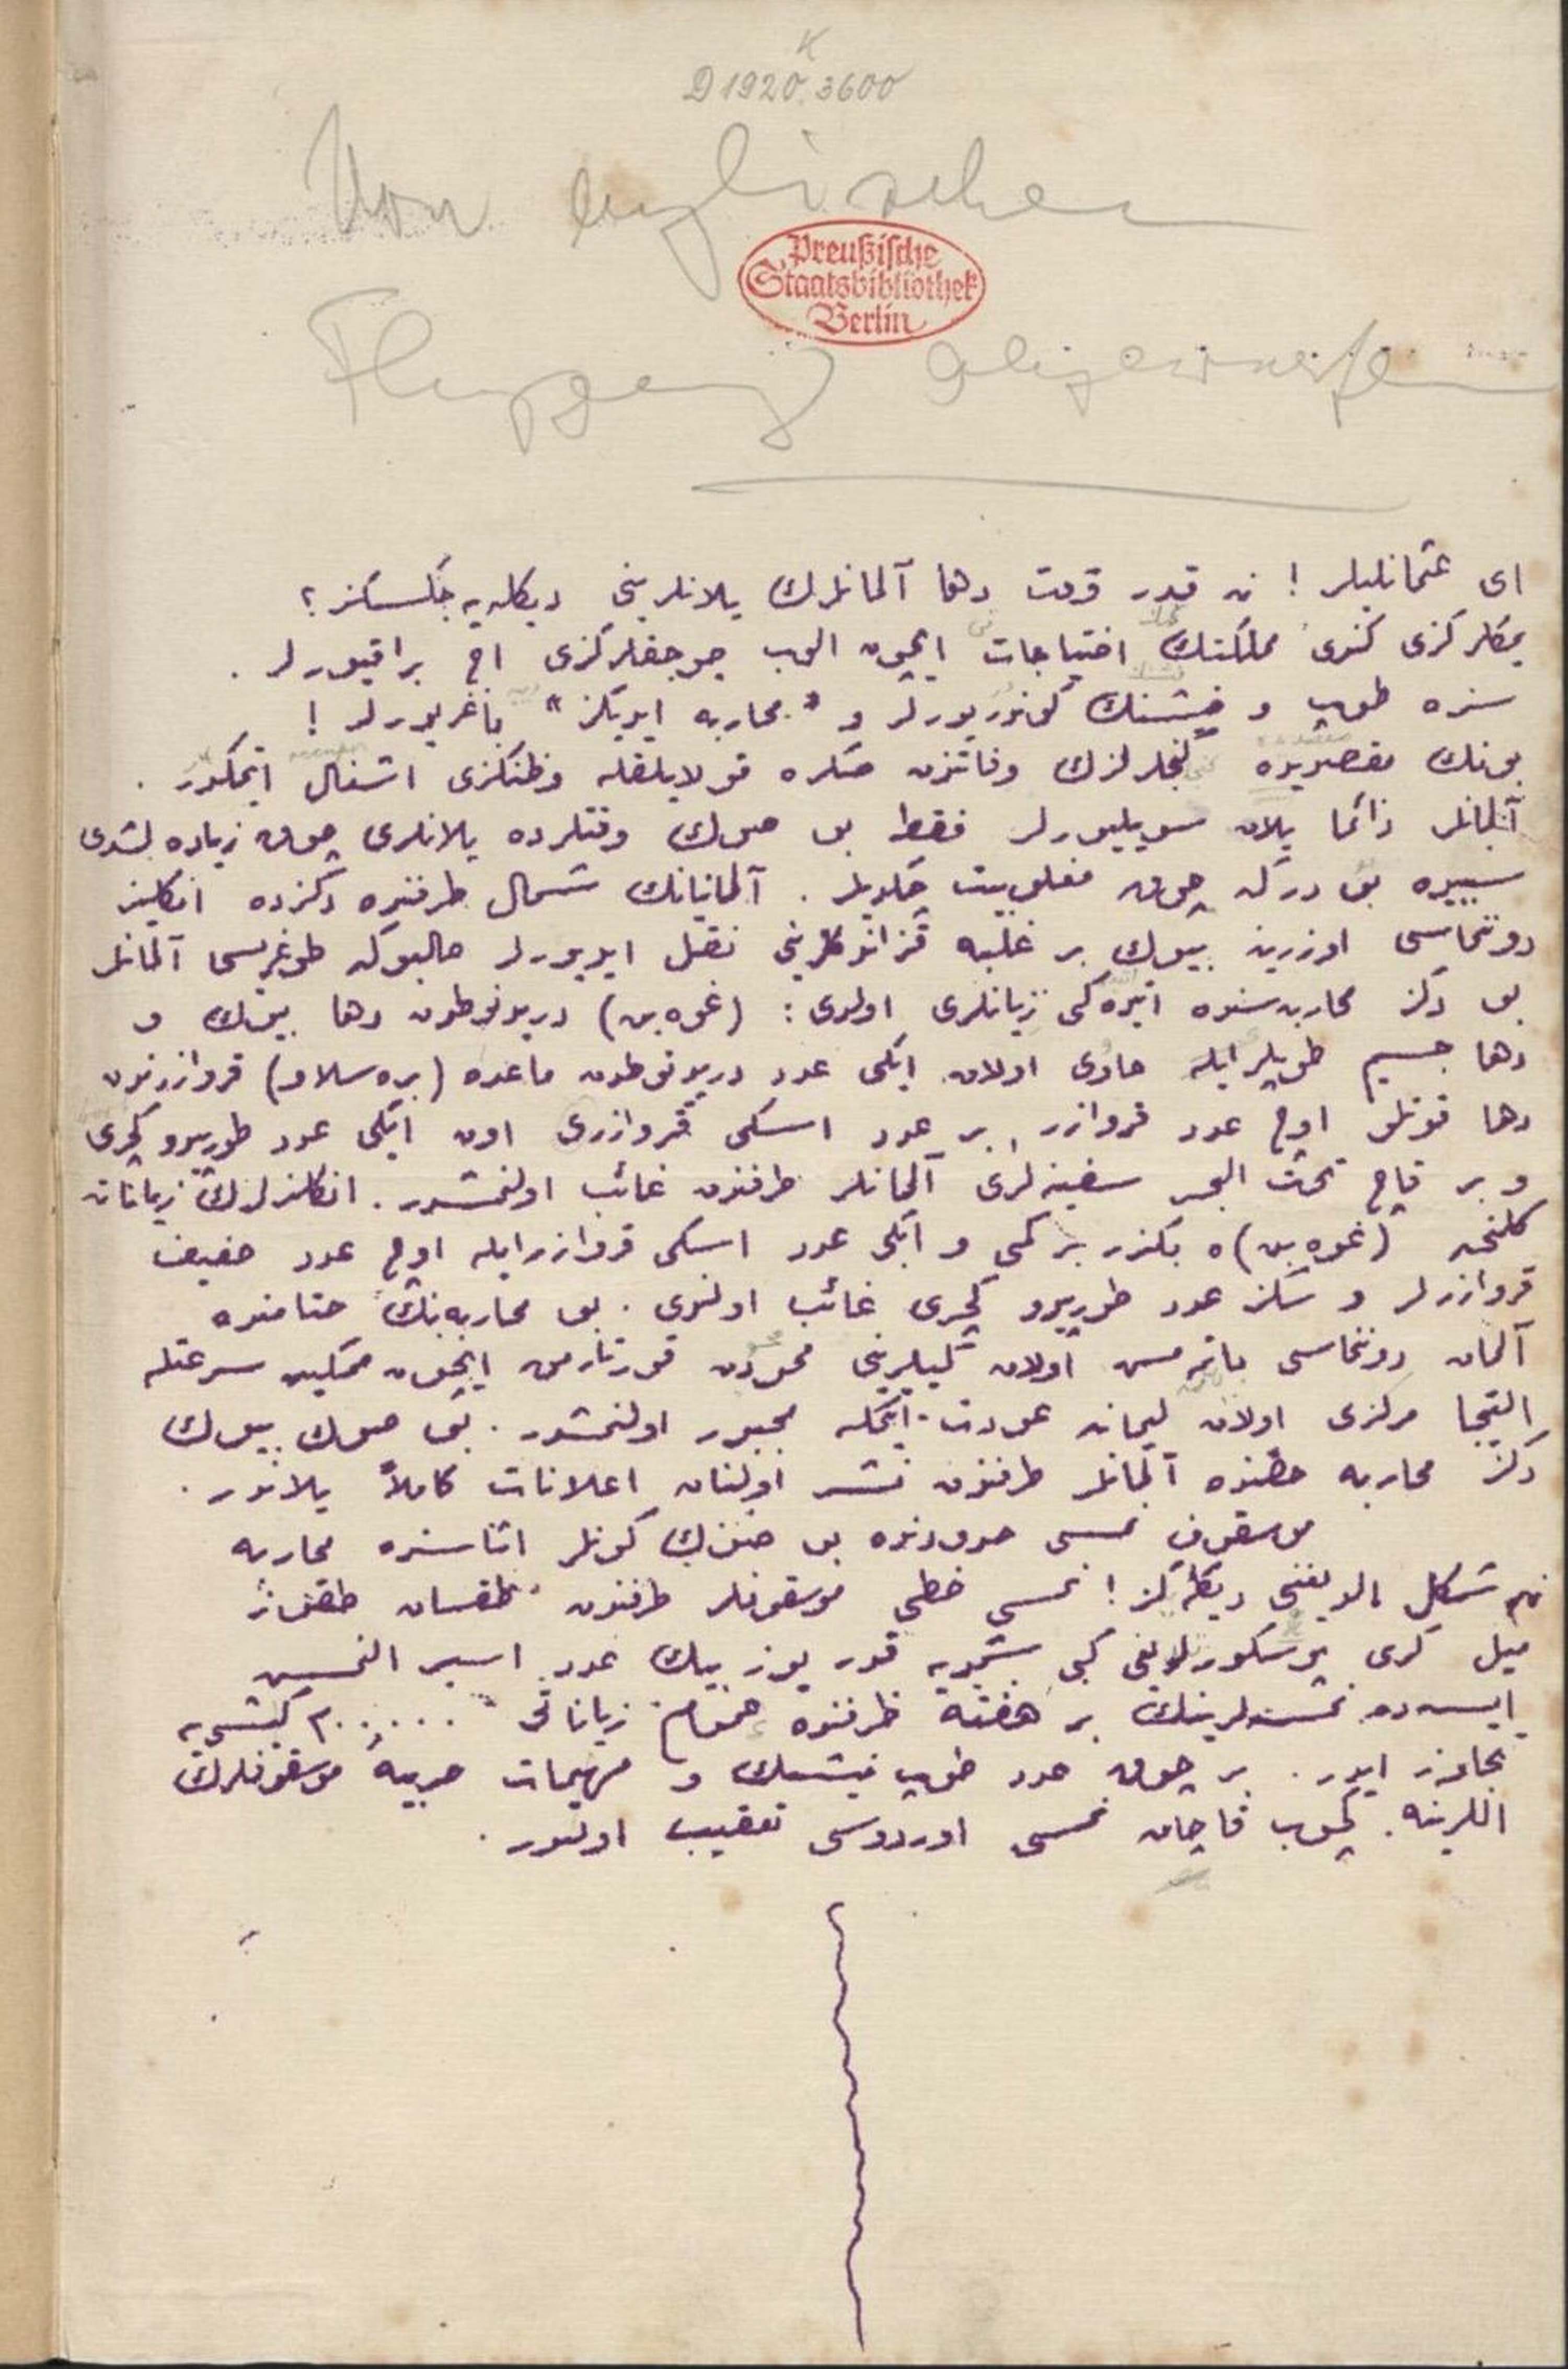 D 1920. 3600
Von englischem
Preußische
Staatsbibliothek
Berlin
Flugzeug abgeworfen
ای عثمانلیلر ! نه قدر وقت دها آلمانلرك یلانلرینی دیكله‌یه‌جكسكز ؟
یمكلركزی كندی مملكتك احتیاجات ایچون الوب چوجقلركزی اچ براقیورلر .
سزه طوپ و فیشنك كوندریورلر و " محاربه ایدیكز " باغریورلر !
بونك مقصدیده كنجلرلزك وفاتندن صكره قولایلقله وطنكزی اشغال ایتمكدر .
آلمانلر دائما یلان سویلیورلر فقط بو صوك وقتلرده یلانلری چوق زیاده لشدی
سببیده بو درکه چوق مغلوبیت چكدیلر . آلمانیانك شمال طرفنده دكزده انكلیز
دوننماسی اوزرینه بیوك بر غلبه قزاندقلرینی نقل ایدیورلر حالبوكه طوغریسی آلمانلر
بو دكز محاربه‌سنده اتیده‌كی زیانلری اولدی : (غوه‌بن) دریدنوطدن دها بیوك و
دها جسیم طوپلر ایله حاوی اولان ایكی عدد دریدنوطدن ماعدا (بره‌سلاو) قروازرندن
دها قوتلو اوچ عدد قروازر , بر عدد اسكی قروازری اون ایكی عدد طورپیدو كچری
و بر قاچ تحت البحر سفینه‌لری آلمانلر طرفندن غائب اولنمشدر . انكلیزلرك زیاناته
كلنجه (غوه‌بن)ه بكزر بر كمی و ایكی عدد اسكی قروازر ایله اوچ عدد خفیف
قروازرلر و سكز عدد طورپیدو كچری غائب اولندی . بو محاربه‌نك ختامنده
آلمان دوننماسی باتمامش اولان كمیلرینی محودن قورتارمق ایچون ممكین سرعتله
التجا مركزی اولان لیمانه عودت ایتمكه مجبور اولنمشدر . بو صوك بیوك
دكز محاربه حقنده آلمانلر طرفندن نشر اولنان اعلانات كاملاً یلاندر .
موسقوف نمسه حدودنده بو صوك كونلر اثناسنده محاربه
نه شكل الدیغنی دیكله‌كز ! نمسه خطی موسقوفلر طرفندن طقسان طقوز
میل كری پوسكورلدیغی كبی شمدیه قدر یوز بیك عدد اسیر النمش
ایسه‌ده نمسه‌لرینك بر هفته ظرفنده عموم زیاناتی ٢٠٠٠٠٠ كیشی‌یه
تجاوز ایدر . بر چوق عدد طوپ فیشنك و مهمات حربیهٔ موسقوفلرك
اللرینه كچوب قاچان نمسه اوردوسی تعقیب اولنور .